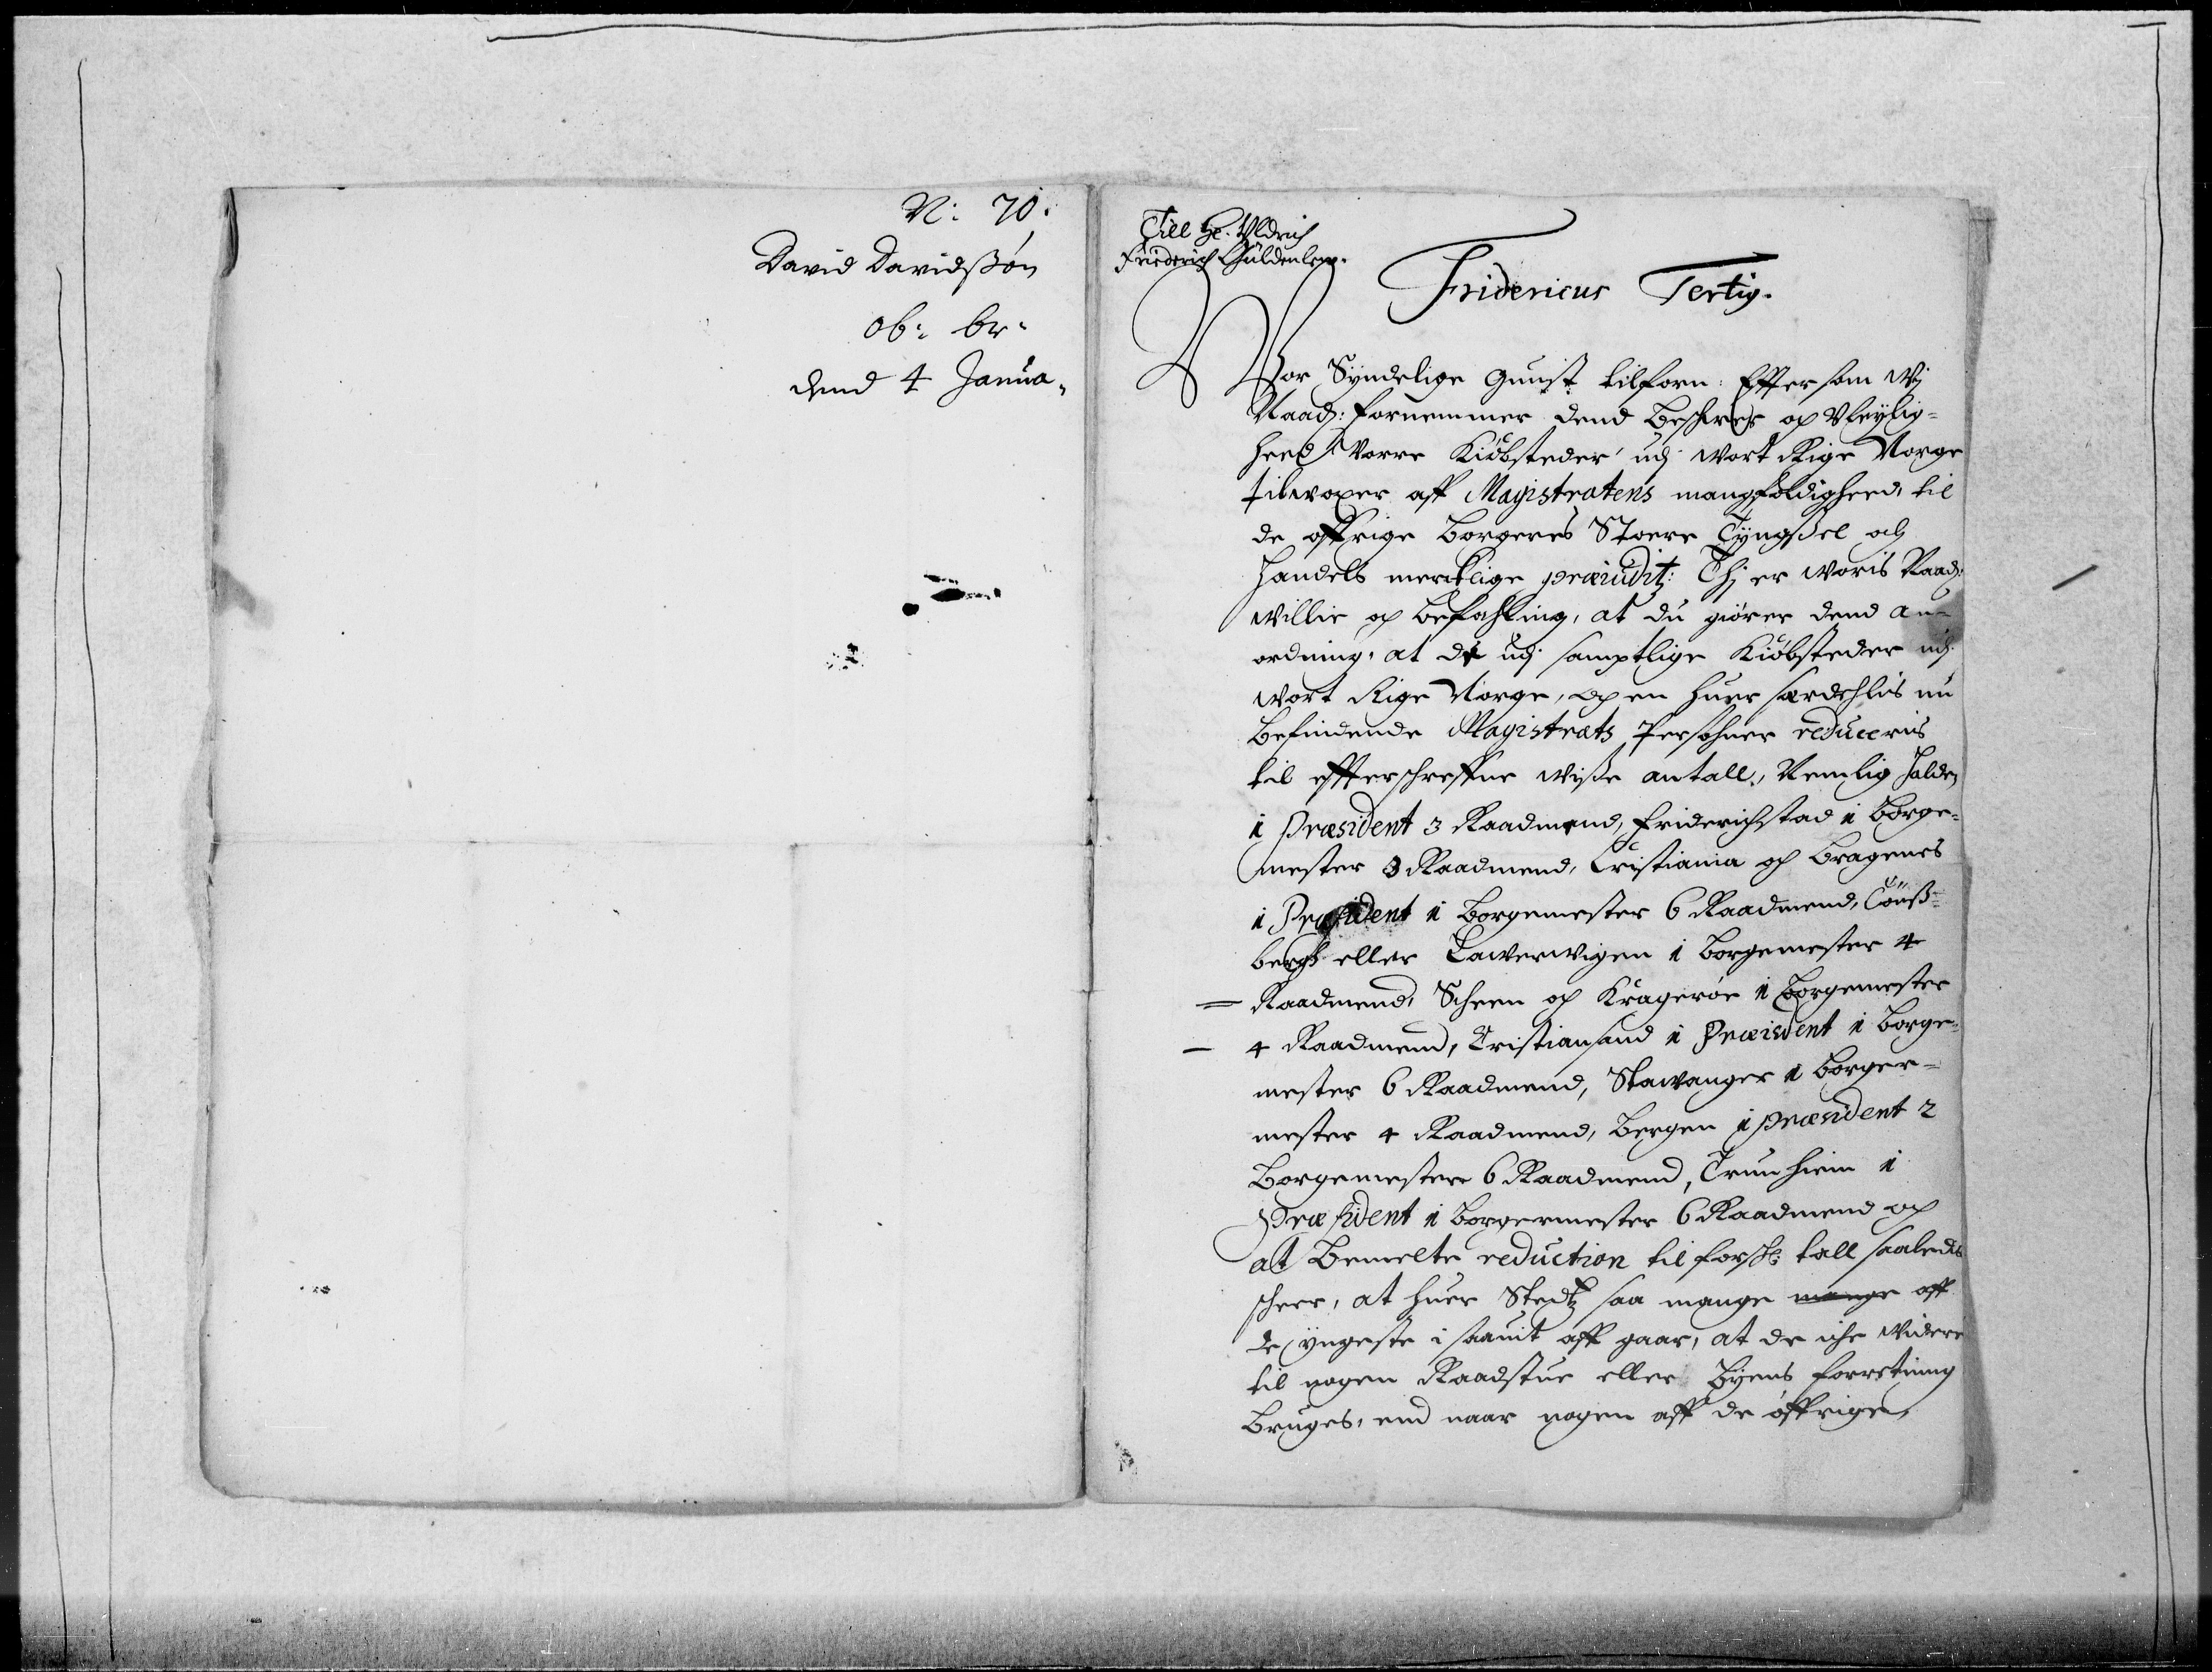 N: 70.
David Davidssøn
ob: br:
dend 4 Janua,
Till Hr. Uldrich
Friederich Güldenlew.
Fridericus Tertig.
Vor Syndelige Gunst tilforn: Effter som Wj
Naad: fornemmer dend Beschwer og Uleylig=
heed Worre Kiöbsteder udj wort Rige Norge
tilwoxer aff Magistratens mangfoldigheed, til
de offrige Borgeres Stoere Tyngsel och
Handels mercklige præiuditz: Thj er woris Naad:
willie og befahling, at du giører dend an=
ordning, at de udj samptlige Kiöbsteder udj
wort Rige Norge, og en huer særdehlis nu
Befindende Magistrats Persohner reduceris
til effterschreffne wisse antall, Nemlig Halden
1 Præsident 3 Raadmend, Friderichstad 1 Borge=
mester 3 Raadmend, Cristiania och Bragenes
1 Præsident 1 Borgemester 6 Raadmend, Tönß=
bergh eller Lawerwigen 1 Borgemester 4
Raadmend, Scheen og Kragerøe 1 Borgemester
4 Raadmend, Cristiansand 1 Præisdent 1 Borge=
mester 6 Raadmend, Stawanger 1 Borger=
mester 4 Raadmend, Bergen 1 præsident 2
Borgemestere 6 Raadmend, Trunhiem 1
Præsident 1 Borgermester 6 Raadmend og
at Bemelte reduction til forsch: tall saaledes
scheer, at huer Stedtz saa mange mange aff
de yngeste i saauit aff gaar, at de iche widere
til nogen Raadstue eller Byens forretning
Bruges, end naar nogen aff de øffrige,